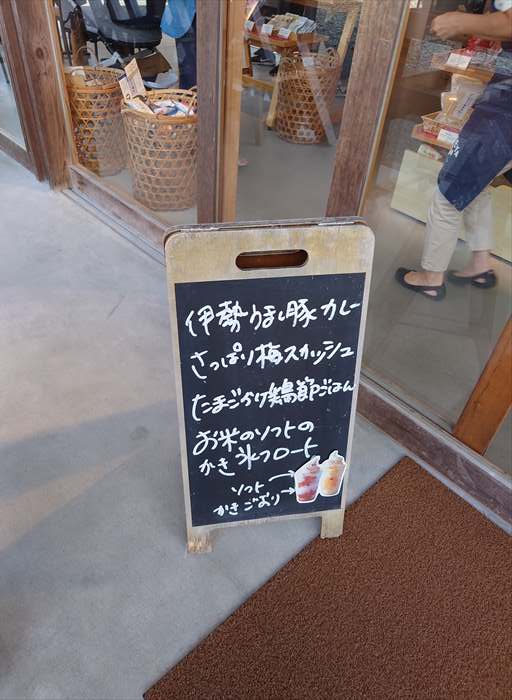 伊勢うまし豚カレー
さっぱり梅スカッシュ
たまごかけ鶏節ごはん
お米のソフトの
かき氷フロート
ソフト
かきごおり